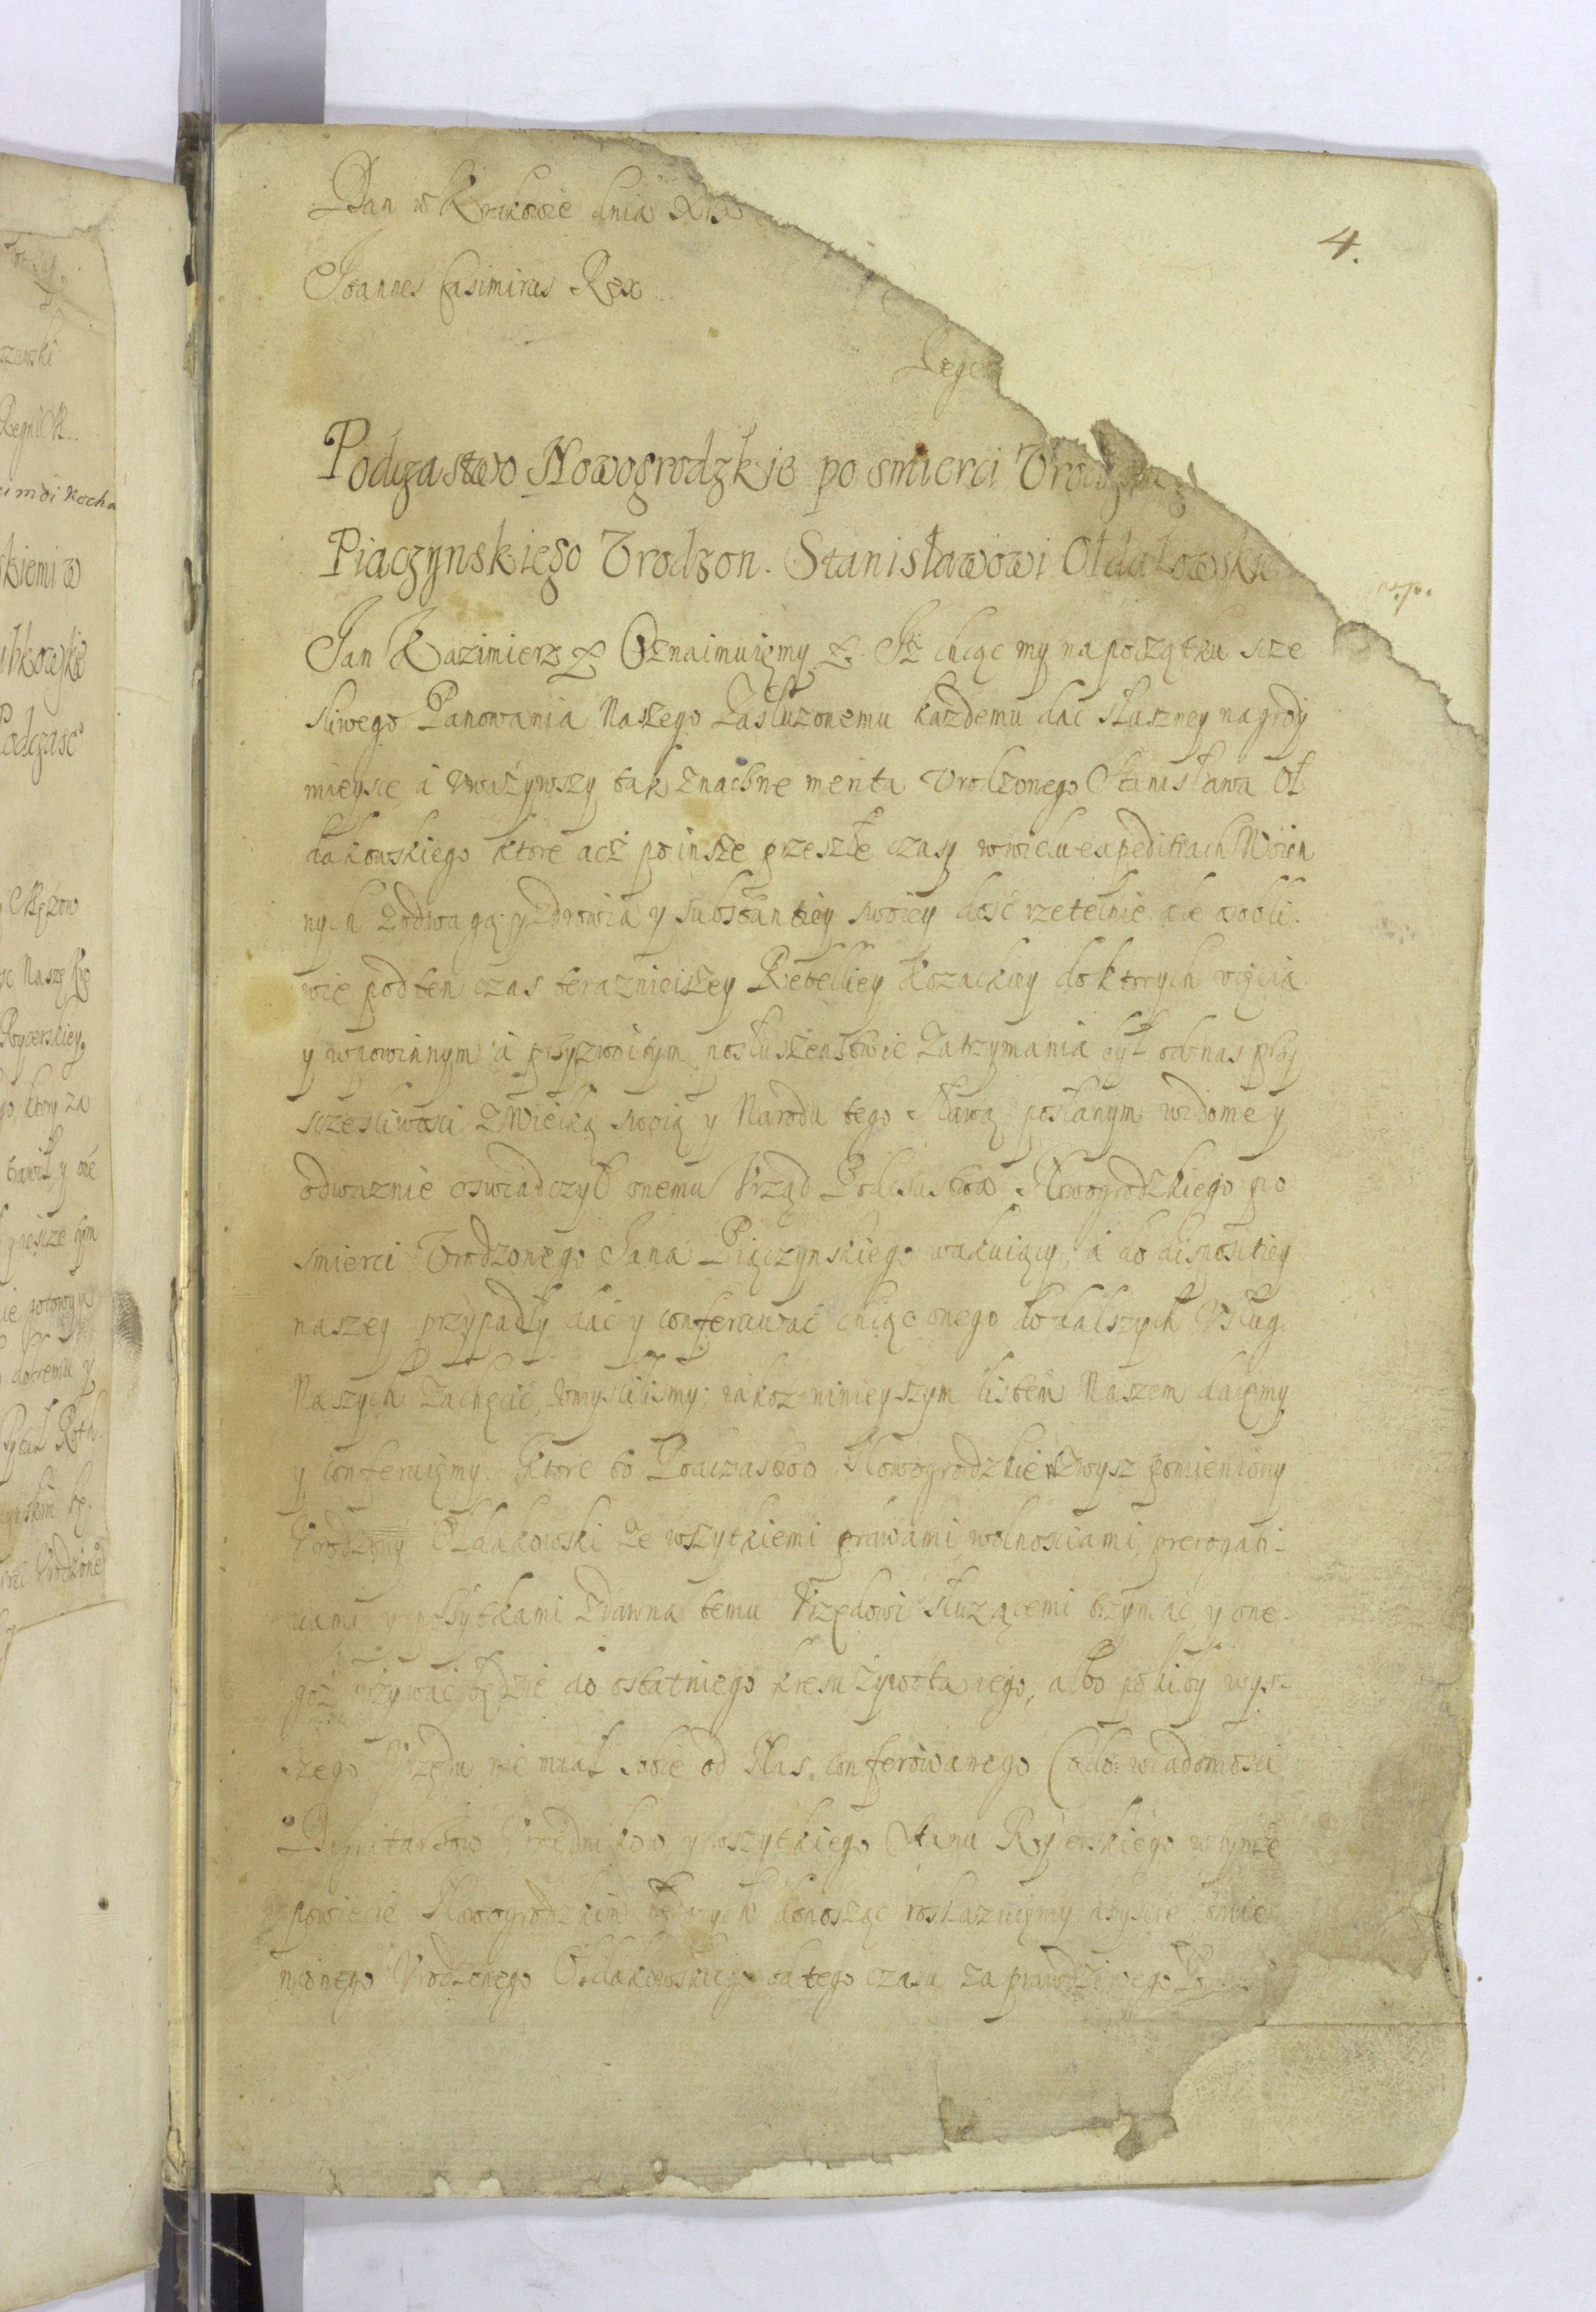 4.
Dan w Krakowie dnia XIX
Joannes Casimirus Rex
Rege
Podczastwo Nowogrodzkie po smierci Vrodzoneg
Piaczynskiego Vrodzon. Stanisławowi Ołdakowski
Jan Kazimierz & Oznaimuięmy & Iż chcąc my na początku scze
sliwego Panowania Naszego Zasłuzonemu kazdemu dac słuszney nagrody
mieysce á vważywszy tak znaczne merita Vrodzonego Stanisława Oł
dakowskiego ktore acż po insze przeszłe czasy w wielu expeditiach Woien
nych z odwagą zdrowia y substantiey swoiey dość rzetelnie ale osobli.
wie pod ten czas teraznieiszey Rebelliey Kozackiey do ktorych vięcia
y w powinnym á przyzwoitym posłuszenstwie Zatrzymania był od nas przy
sczesliwosci z Wielką swoią y Narodu tego sławą posłanym widome y
odwaznie oswiadczył onemu Vrząd Podczastwa Nowogrodzkiego po
smierci Vrodzonego Jana Piączynskiego wakuiący, á do dispositiey
naszey przypadły dać y conferować chcąc onego do dalszych Vsług
Naszych Zachęcić, vmyslilismy; iakoz ninieyszym listem Naszem daięmy
y conferuięmy. Ktore to Podczastwo Nowogrodzkie zwysz pomieniony
Vrodzony Ołdakowski ze wszytkiemi prawami wolnosciami, prerogati-
wami y pożytkami Zdawna temu Vrzędowi słuzącemi trzymać y one-
goż vżywać będzie do ostatniego kresu żywota iego, albo poki by wys-
szego Vrzędu nie miał sobie od Nas conferowanego Co do wiadomosci
Dignitarzow Vrzędnikow y wszytkiego Stanu Rycerskiego w tymże
powiecie Nowogrodzkim będących donosząc roskazuięmy abyscie pomie
nionego Vrodzonego Ołdakowskiego od tego czasu za prawdziwego